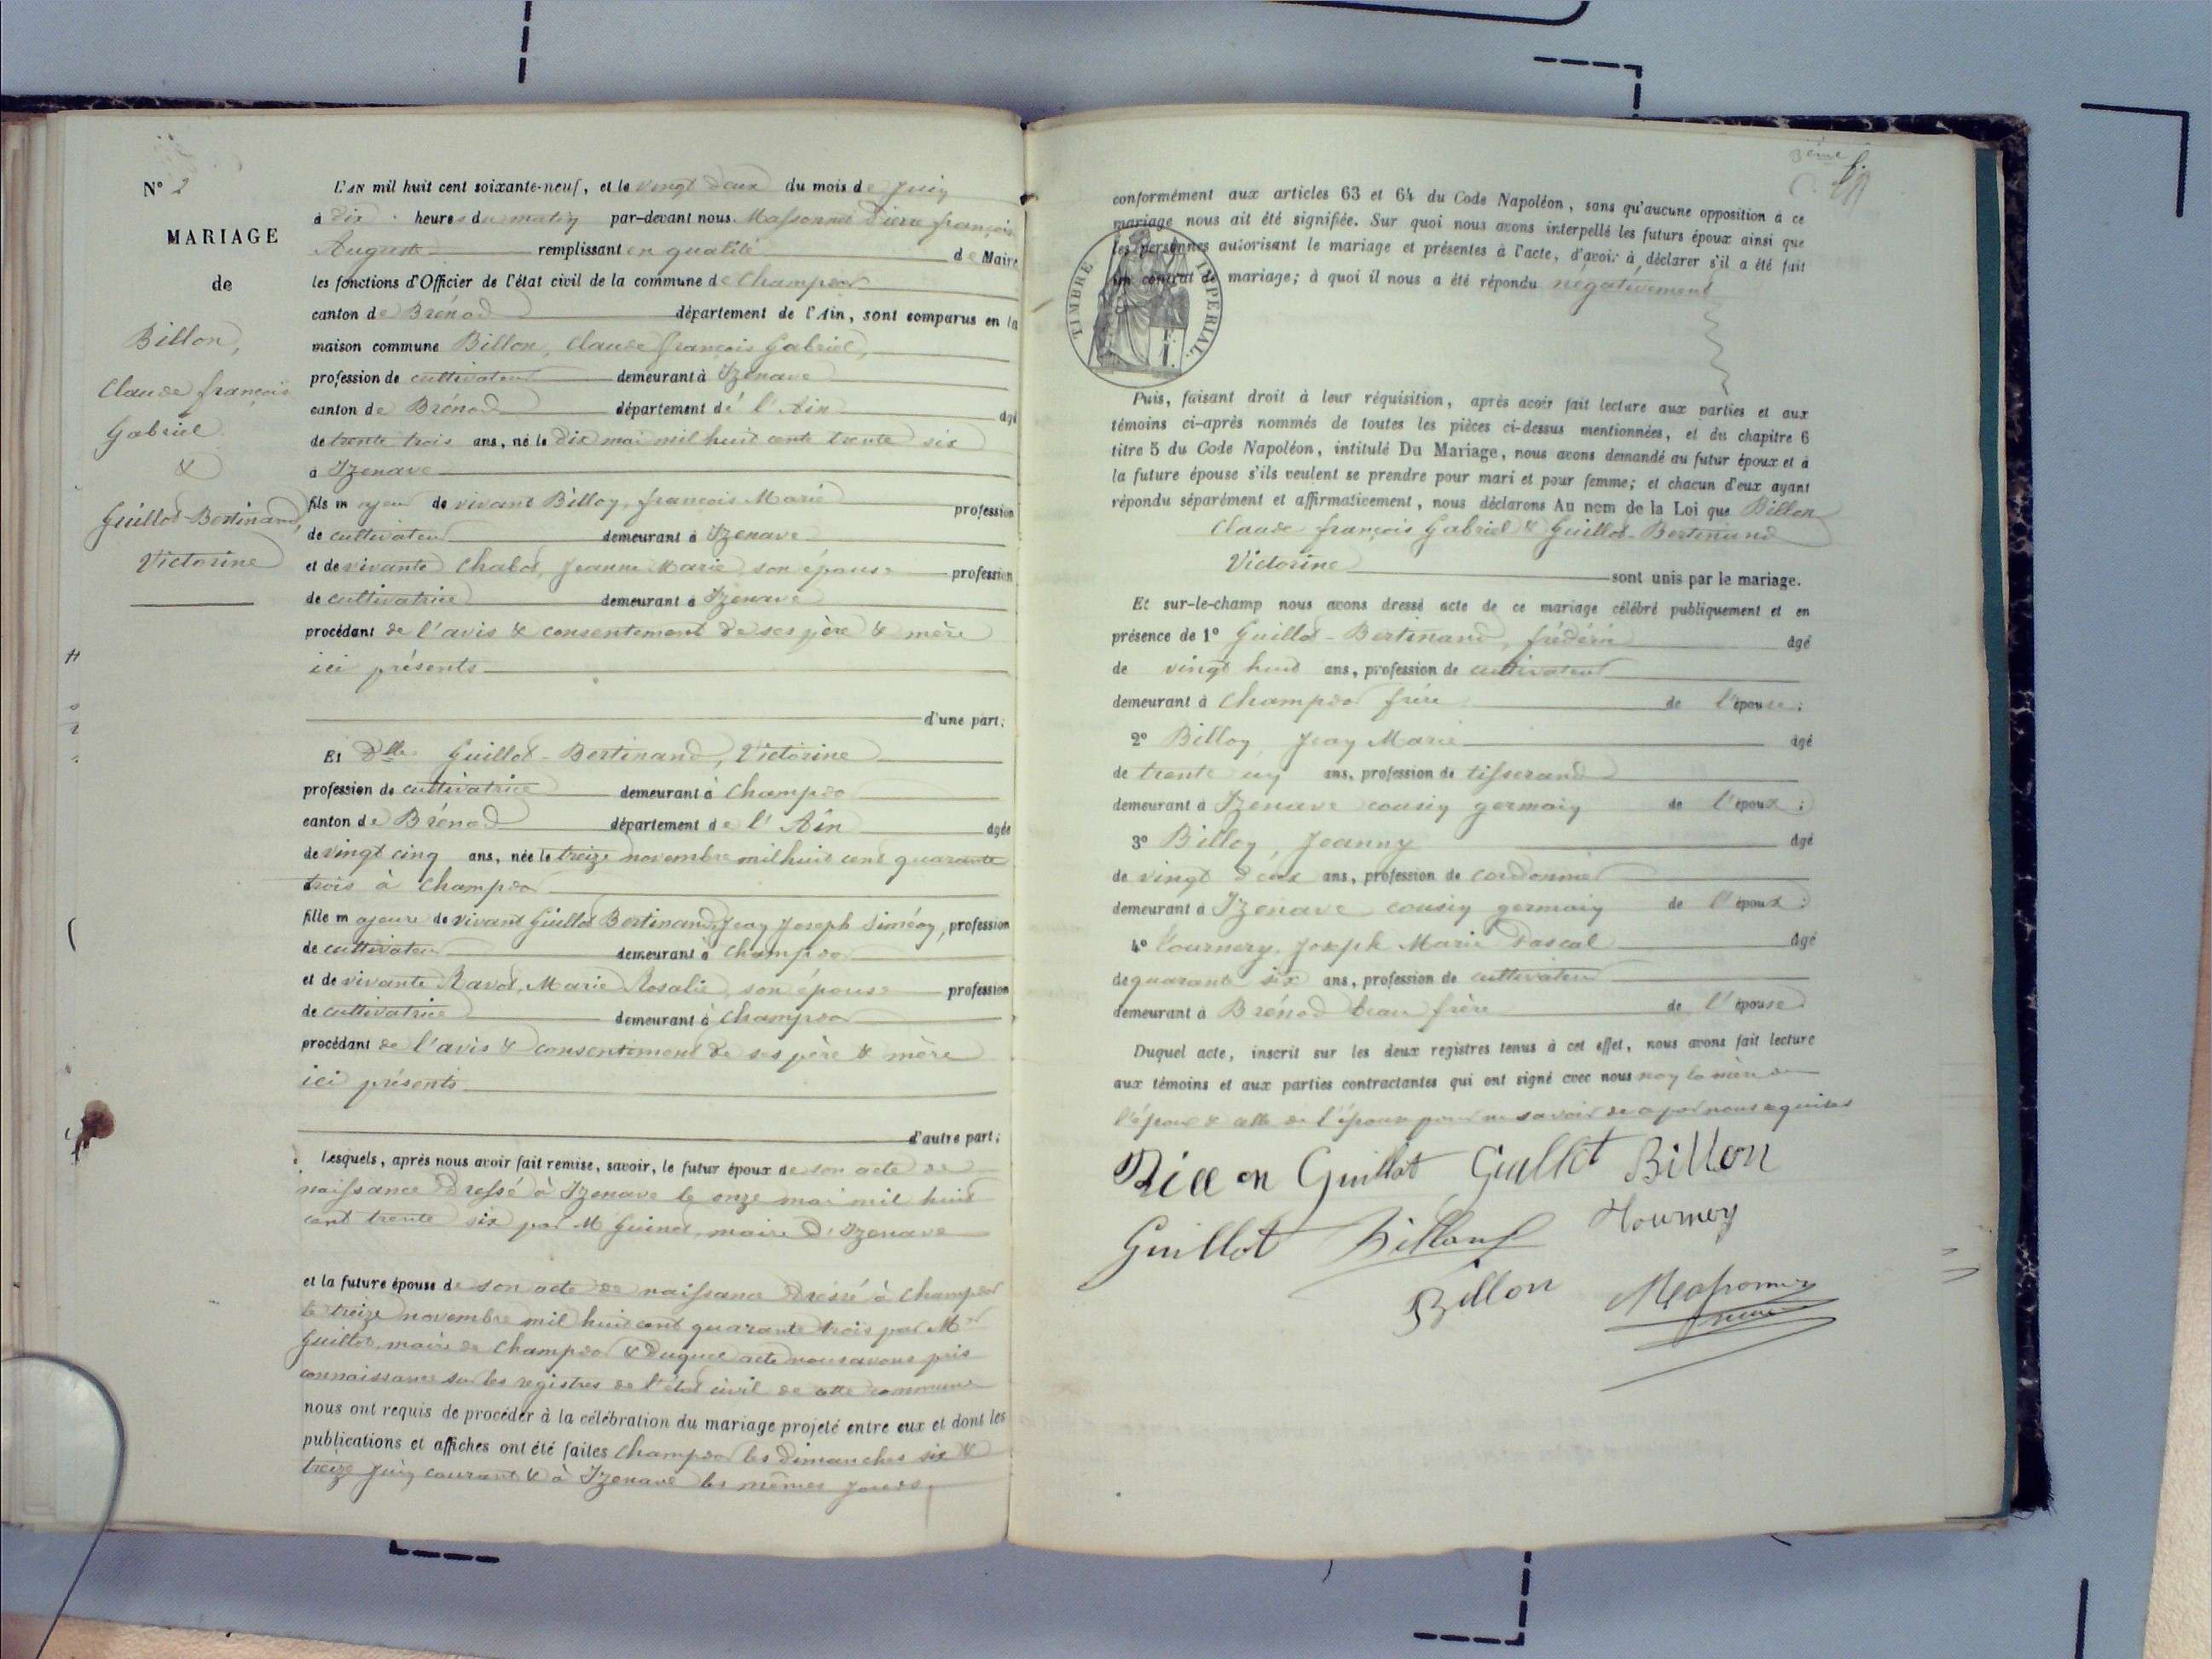 N° 2
MARIAGE
de
Billon,
Claude françois
Gabriel
&
Guillot-Bertinand,
Victorine
L'AN mil huit cent soixante-neuf, et le vingt deux du mois de juin
à dix heures du matin par-devant nous Massonnet Pierre françois
Auguste remplissant en qualité de Maire
les fonctions d'Officier de l'état civil de la commune de Champdor
canton de Brénod département de l'Ain, sont comparus en la
maison commune Billon, Claude françois Gabriel,
profession de cultivateur demeurant à Izenave
canton de Brénod département de l'Ain âgé
de trente trois ans, né le dix mai mil huit cent trente six
à Izenave
fils majeur de vivant Billon, françois Marie profession
de cultivateur demeurant à Izenave
et de vivante Chabot, Jeanne Marie, son épouse profession
de cultivatrice demeurant à Izenave
procédant de l'avis & consentement de ses père & mère
ici présents
d'une part;
Et Dlle Guillot-Bertinand, Victorine
profession de cultivatrice demeurant à Champdor
canton de Brénod département de l'Ain âgée
de vingt cinq ans, née le treize novembre mil huit cent quarante
trois à Champdor
fille majeure de vivant Guillot Bertinand, Jean Joseph Siméon, profession
de cultivateur demeurant à Champdor
et de vivante Ravot, Marie Rosalie, son épouse profession
de cultivatrice demeurant à Champdor
procédant de l'avis & consentement de ses père & mère
ici présents
d'autre part;
Lesquels, après nous avoir fait remise, savoir, le futur époux de son acte de
naissance dressé à Izenave le onze mai mil huit
cent trente six par M Guinet, maire d'Izenave
et la future épouse de son acte de naissance dressé à Champdor
le treize novembre mil huit cent quarante trois par Mr
Guillot, maire de Champdor & duquel acte nous avons pris
connaissance sur les registres de l'état civil de cette commune
nous ont requis de procéder à la célébration du mariage projeté entre eux et dont les
publications et affiches ont été faites Champdor les dimanches six &
treize juin courant & à Izenave les mêmes jours
3ème f.
conformément aux articles 63 et 64 du Code Napoléon, sans qu'aucune opposition à ce
mariage nous ait été signifiée. Sur quoi nous avons interpellé les futurs époux ainsi que
les personnes autorisant le mariage et présentes à l'acte, d'avoir à déclarer s'il a été fait
un contrat de mariage; à quoi il nous a été répondu négativement
TIMBRE IMPERIAL.
Puis, faisant droit à leur réquisition, après avoir fait lecture aux parties et aux
témoins ci-après nommés de toutes les pièces ci-dessus mentionnées, et du chapitre 6
titre 5 du Code Napoléon, intitulé Du Mariage, nous avons demandé au futur époux et à
la future épouse s'ils veulent se prendre pour mari et pour femme; et chacun d'eux ayant
répondu séparément et affirmativement, nous déclarons Au nom de la Loi que Billon
Claude françois Gabriel & Guillot-Bertinand
Victorine sont unis par le mariage.
Et sur-le-champ nous avons dressé acte de ce mariage célébré publiquement et en
présence de 1° Guillot-Bertinand, frédéric âgé
de vingt huit ans, profession de cultivateur
demeurant à Champdor frère de l'épouse;
2° Billon, Jean Marie âgé
de trente un ans, profession de tisserand
demeurant à Izenave cousin germain de l'époux;
3° Billon, Joanny âgé
de vingt deux ans, profession de cordonnier
demeurant à Izenave cousin germain de l'époux;
4° Tournery, Joseph Marie Pascal âgé
de quarante six ans, profession de cultivateur
demeurant à Brénod beau frère de l'épouse
Duquel acte, inscrit sur les deux registres tenus à cet effet, nous avons fait lecture
aux témoins et aux parties contractantes qui ont signé avec nous non la mère de
l'époux & celle de l'épouse pour ne savoir de ce par nous requises
Billon Guillot Guillot Billon
Guillot Billon Tournery
Billon Massonnet
maire